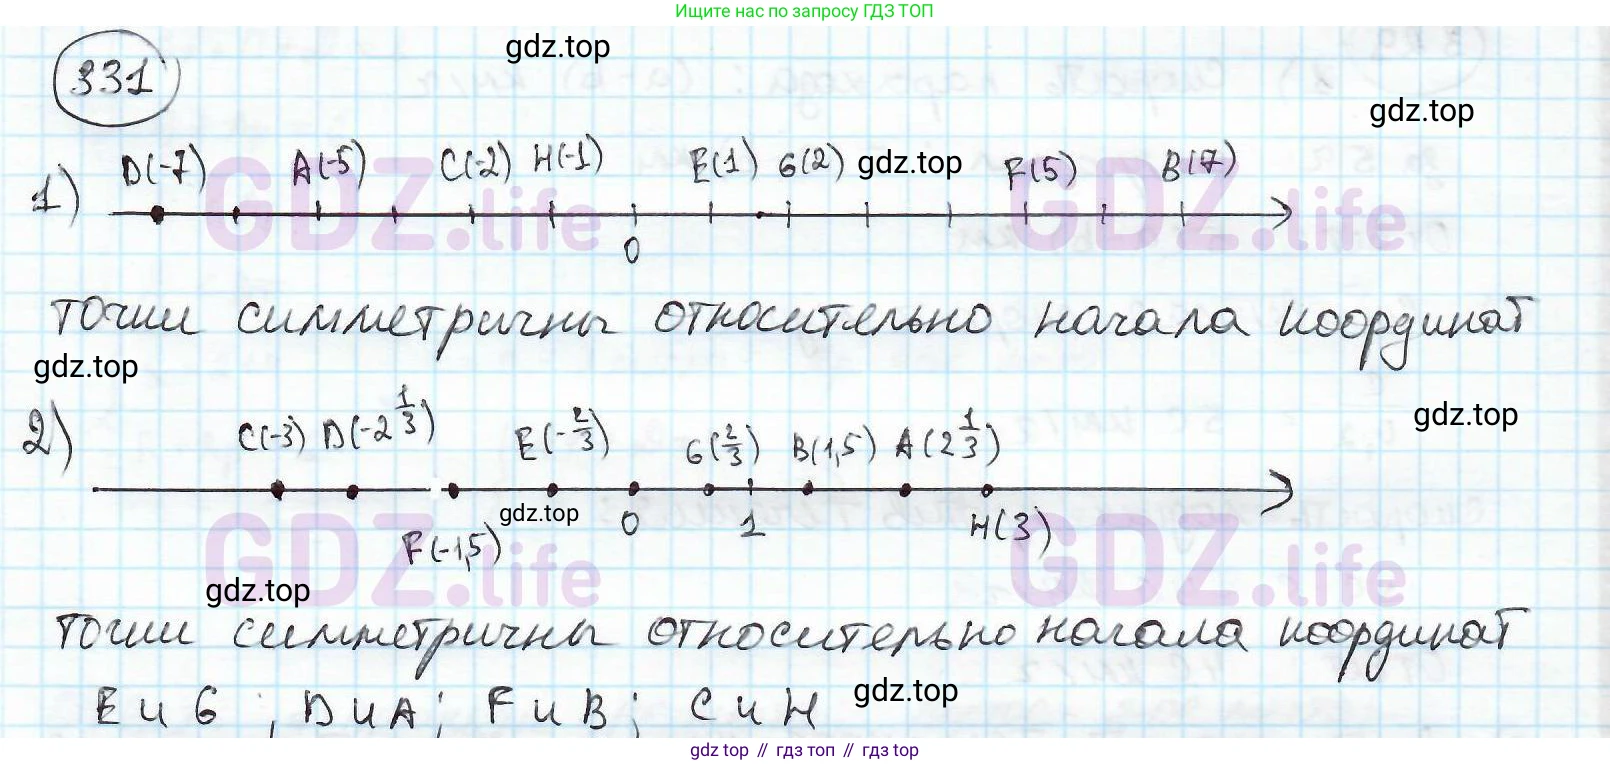 Ищите нас по запросу ГДЗ ТОП
331
gdz.top
gdz.top
1) D(-7) A(-5) C(-2) H(-1) E(1) G(2) gdz.top F(5) B(7)
GDZ.life GDZ.life
0
точки симметричны относительно начала координат
gdz.top
gdz.top
2) C(-3) D(-2 1/3) E(-2/3) G(2/3) B(1,5) A(2 1/3)
gdz.top
0 1 H(3)
F(-1,5)
GDZ.life GDZ.life
gdz.top
точки симметричны относительно начала координат
E и G ; D и A; F и B; C и H
gdz.top
gdz top // гдз топ // gdz top